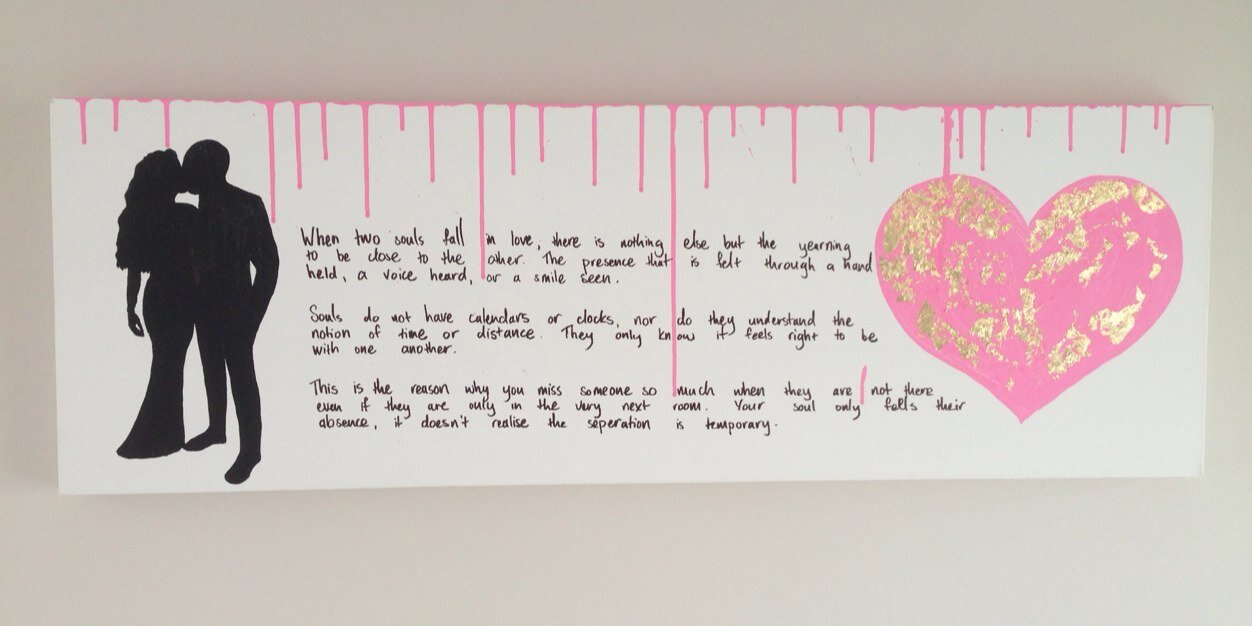 When two souls fall in love, there is nothing else but the yearning
to be close to the other. The presence that is felt through a hand
held, a voice heard, or a smile seen.
Souls do not have calendars or clocks, nor do they understand the
notion of time or distance. They only know it feels right to be
with one another.
This is the reason why you miss someone so much when they are not there
even if they are only in the very next room. Your soul only feels their
absence, it doesn't realise the seperation is temporary.